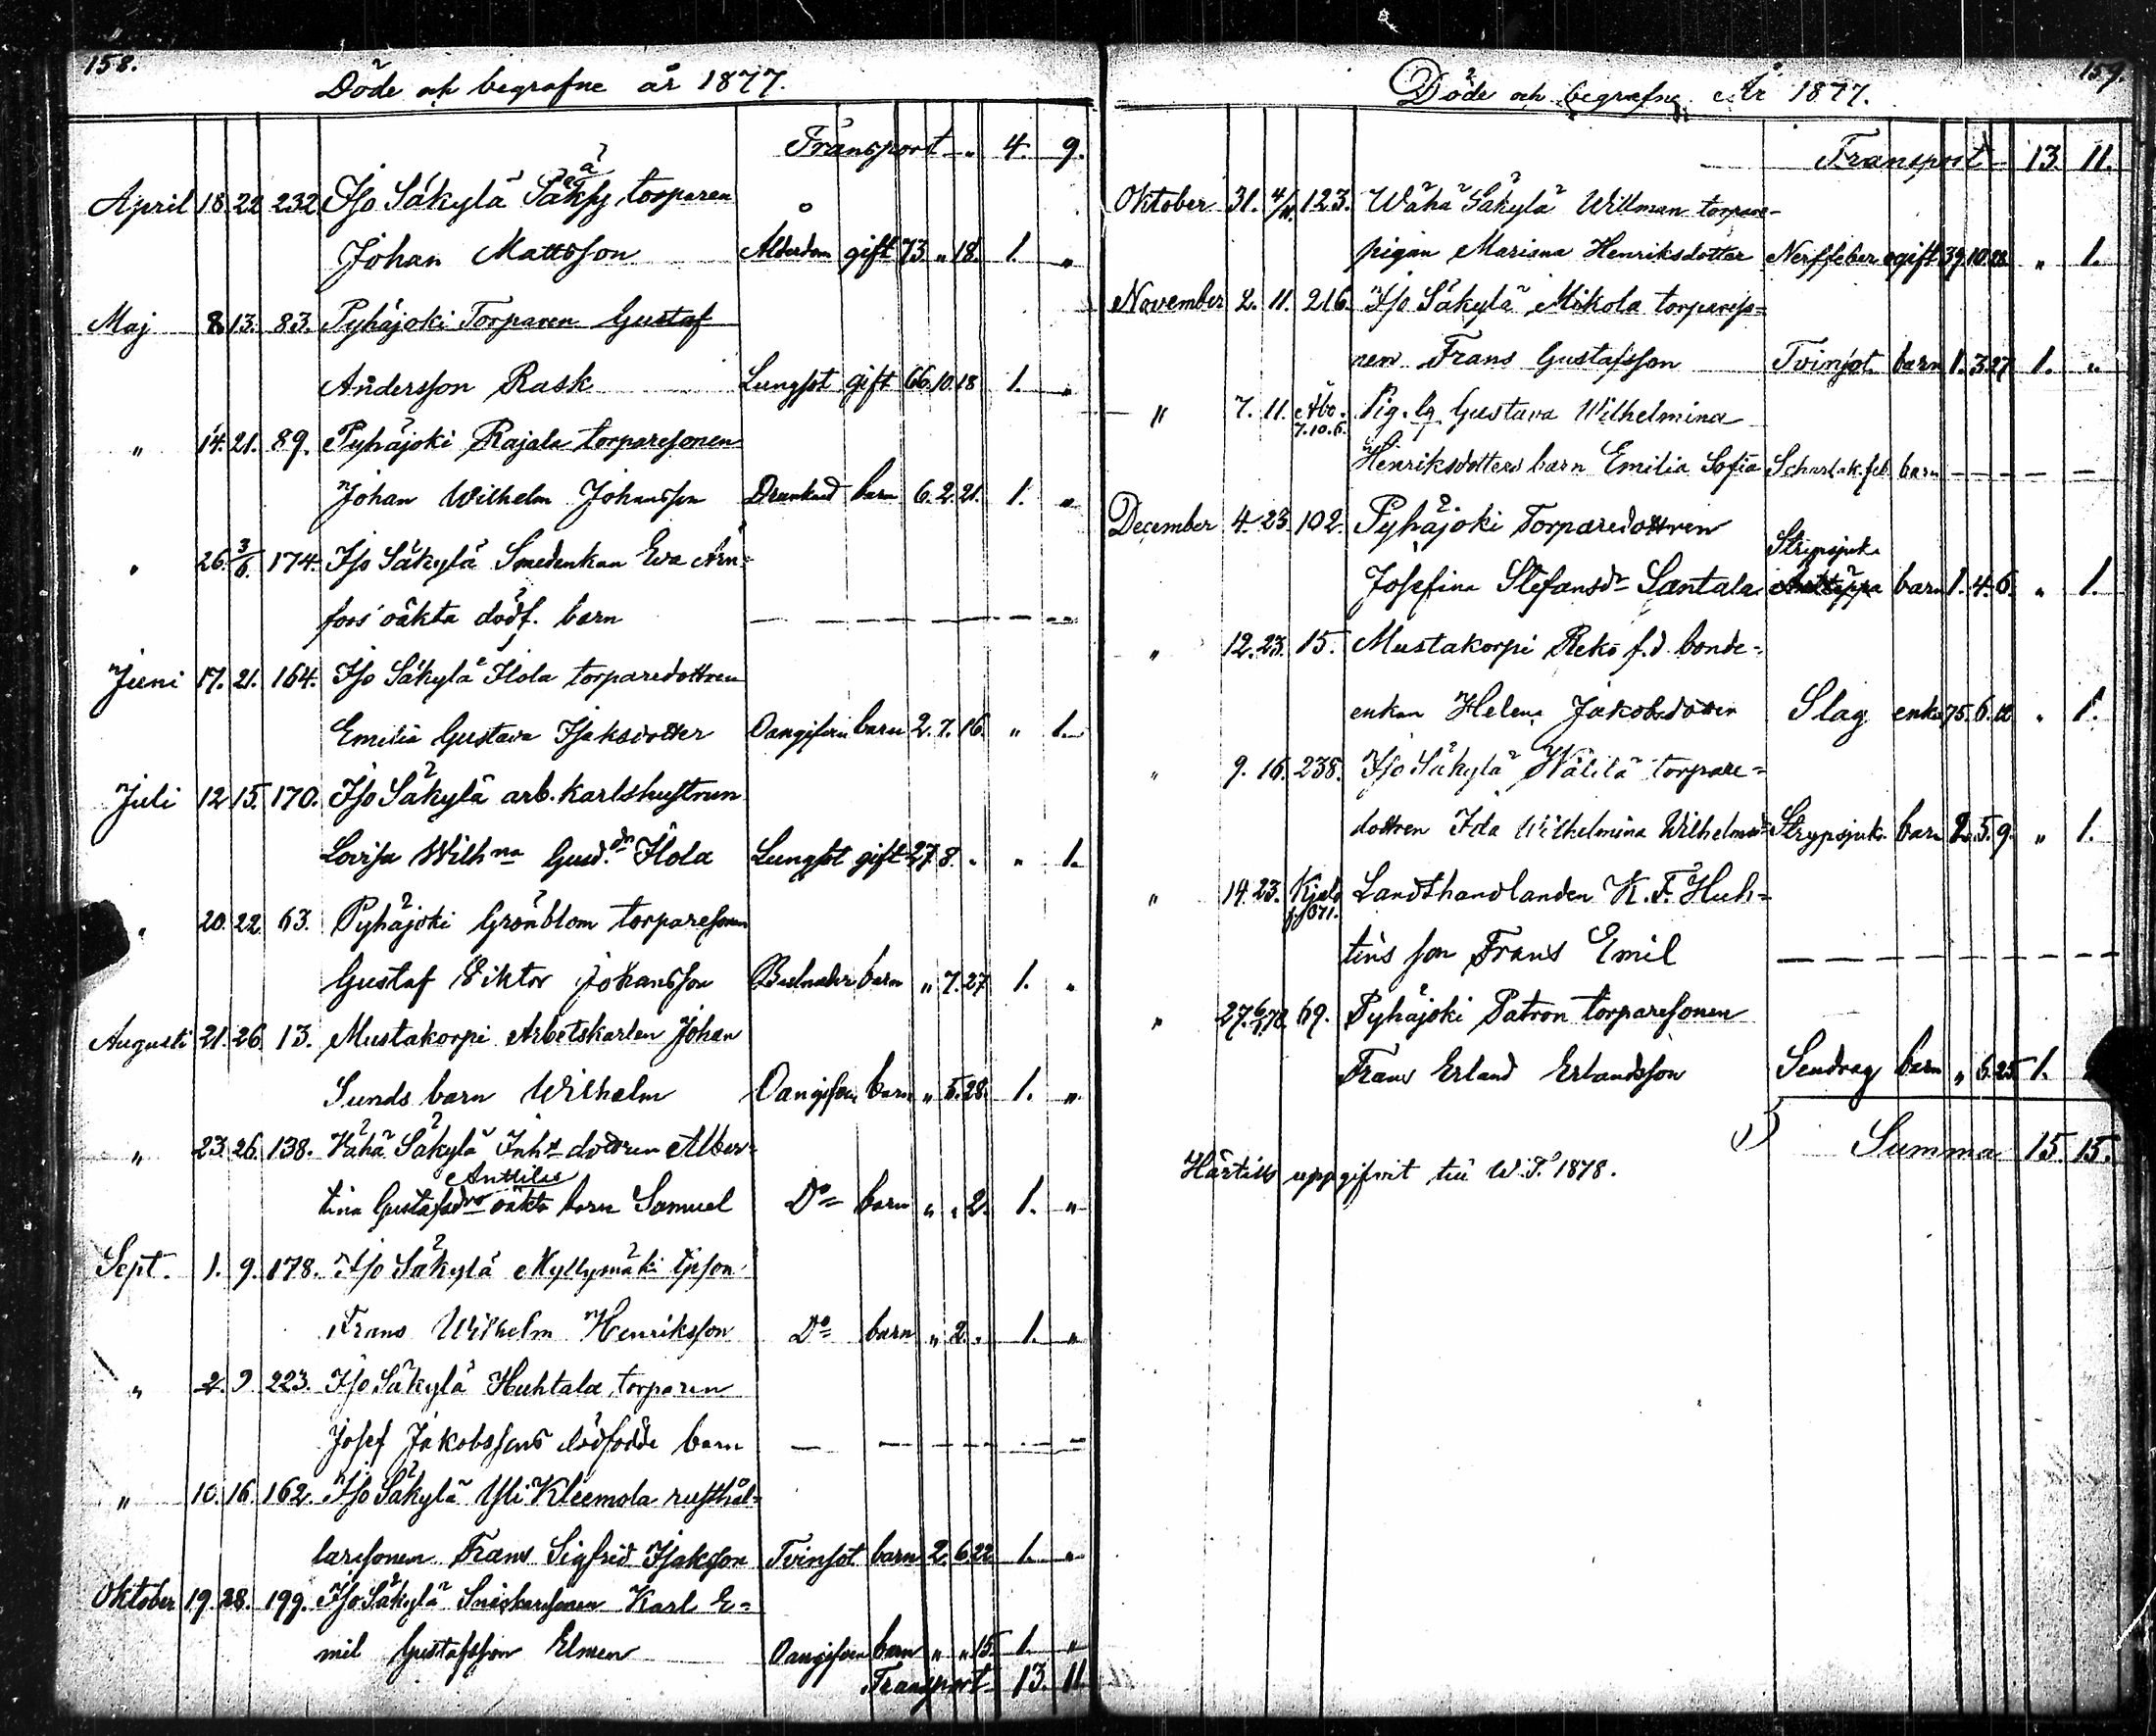 158.
Döde och begrafne år 1877.
Transport " 4. 9.
April 18. 22 232 Iso Säkylä torparen
Johan Mattsson Ålderdom gift 73. " 18. 1. "
Maj 8 13. 83. Pyhäjoki Torparen Gustaf
Andersson Rask Lungsot gift 66. 10. 18 1. "
" 14. 21. 89. Pyhäjoki Rajala torparesonen
Johan Wilhelm Johansson Drunknad barn 6. 2. 21. 1. "
" 26. 3/6. 174. Iso Säkylä Smedenkan Eva Arn-
fors' oäkta dödf. barn — — — — — — —
Juni 17. 21. 164. Iso Säkylä Ilola torparedottren
Emilia Gustava Isaksdotter Oangifven barn 2. 7. 16. " 1.
Juli 12 15. 170. Iso Säkylä arb. karlshustrun
Lovisa Wilhna Gusd.dr Ilola Lungsot gift 27 8. " " 1.
" 20. 22 63. Pyhäjoki Grönblom torparesonen
Gustaf Viktor Johansson barn " 7. 27 1. "
Augusti 21. 26. 13. Mustakorpi Arbetskarlen Johan
Sunds barn Wilhelm Oangifven barn " 5. 28. 1. "
" 23. 26. 138. Vähä Säkylä Inhs dottren Alber-
Anttilas
tina Gustafsdrs oäkta barn Samuel Do barn " " 2. 1. "
Sept. 1. 9. 178. Iso Säkylä Myllymäki tpson
Frans Wilhelm Henriksson Do barn " 2. " 1. "
" 2. 9 223. Iso Säkylä Huhtala torparen
Josef Jakobssons dödfödde barn — — — — — — —
" 10. 16. 162. Iso Säkylä Yli Kleemola rusthål-
laresonen Frans Sigfrid Isaksson Tvinsot barn 2. 6. 22 1. "
Oktober 19. 28. 199. Iso Säkylä Snickaresonen Karl E-
mil Gustafsson Elmen Oangifven barn " " 15. 1. "
Transport 13. 11.
159.
Döde och begrafne År 1877.
Transport 13. 11.
Oktober 31. 4/11. 123. Wähä Säkylä Willman torpare-
pigan Mariana Henriksdotter Nerffeber ogift 39. 10. 28. " 1.
November 2. 11. 216. Iso Säkylä Mikola torpareso-
nen Frans Gustafsson Tvinsot barn 1. 3. 27 1. "
" 7. 11. Åbo. Pig. Gustava Wilhelmina
7.10.6.
Henriksdotters barn Emilia Sofia Scharlak.feb barn — — — — —
December 4. 23. 102. Pyhäjoki Torparedottren
Strypsjuka
Josefina Stefansdr Santala barn 1. 4. 6. " 1.
" 12. 23. 15. Mustakorpi Reko f.d. bonde-
enkan Helena Jakobsdotter Slag enka 75. 6. " 1.
" 9. 16. 238. Iso Säkylä Wälilä torpare-
dottren Ida Wilhelmina Wilhelmsd. Strypsjuka barn 2. 5. 9. " 1.
" 14. 23. Landthandlanden K. F. Huh-
tins son Frans Emil — — — — — — —
" 27. 6/1 78. 69. Pyhäjoki Patron torparesonen
Frans Erland Erlandsson Sendrag barn " 6. 25 1.
Summa 15. 15.
Härtills uppgifvit till W.T. 1878.